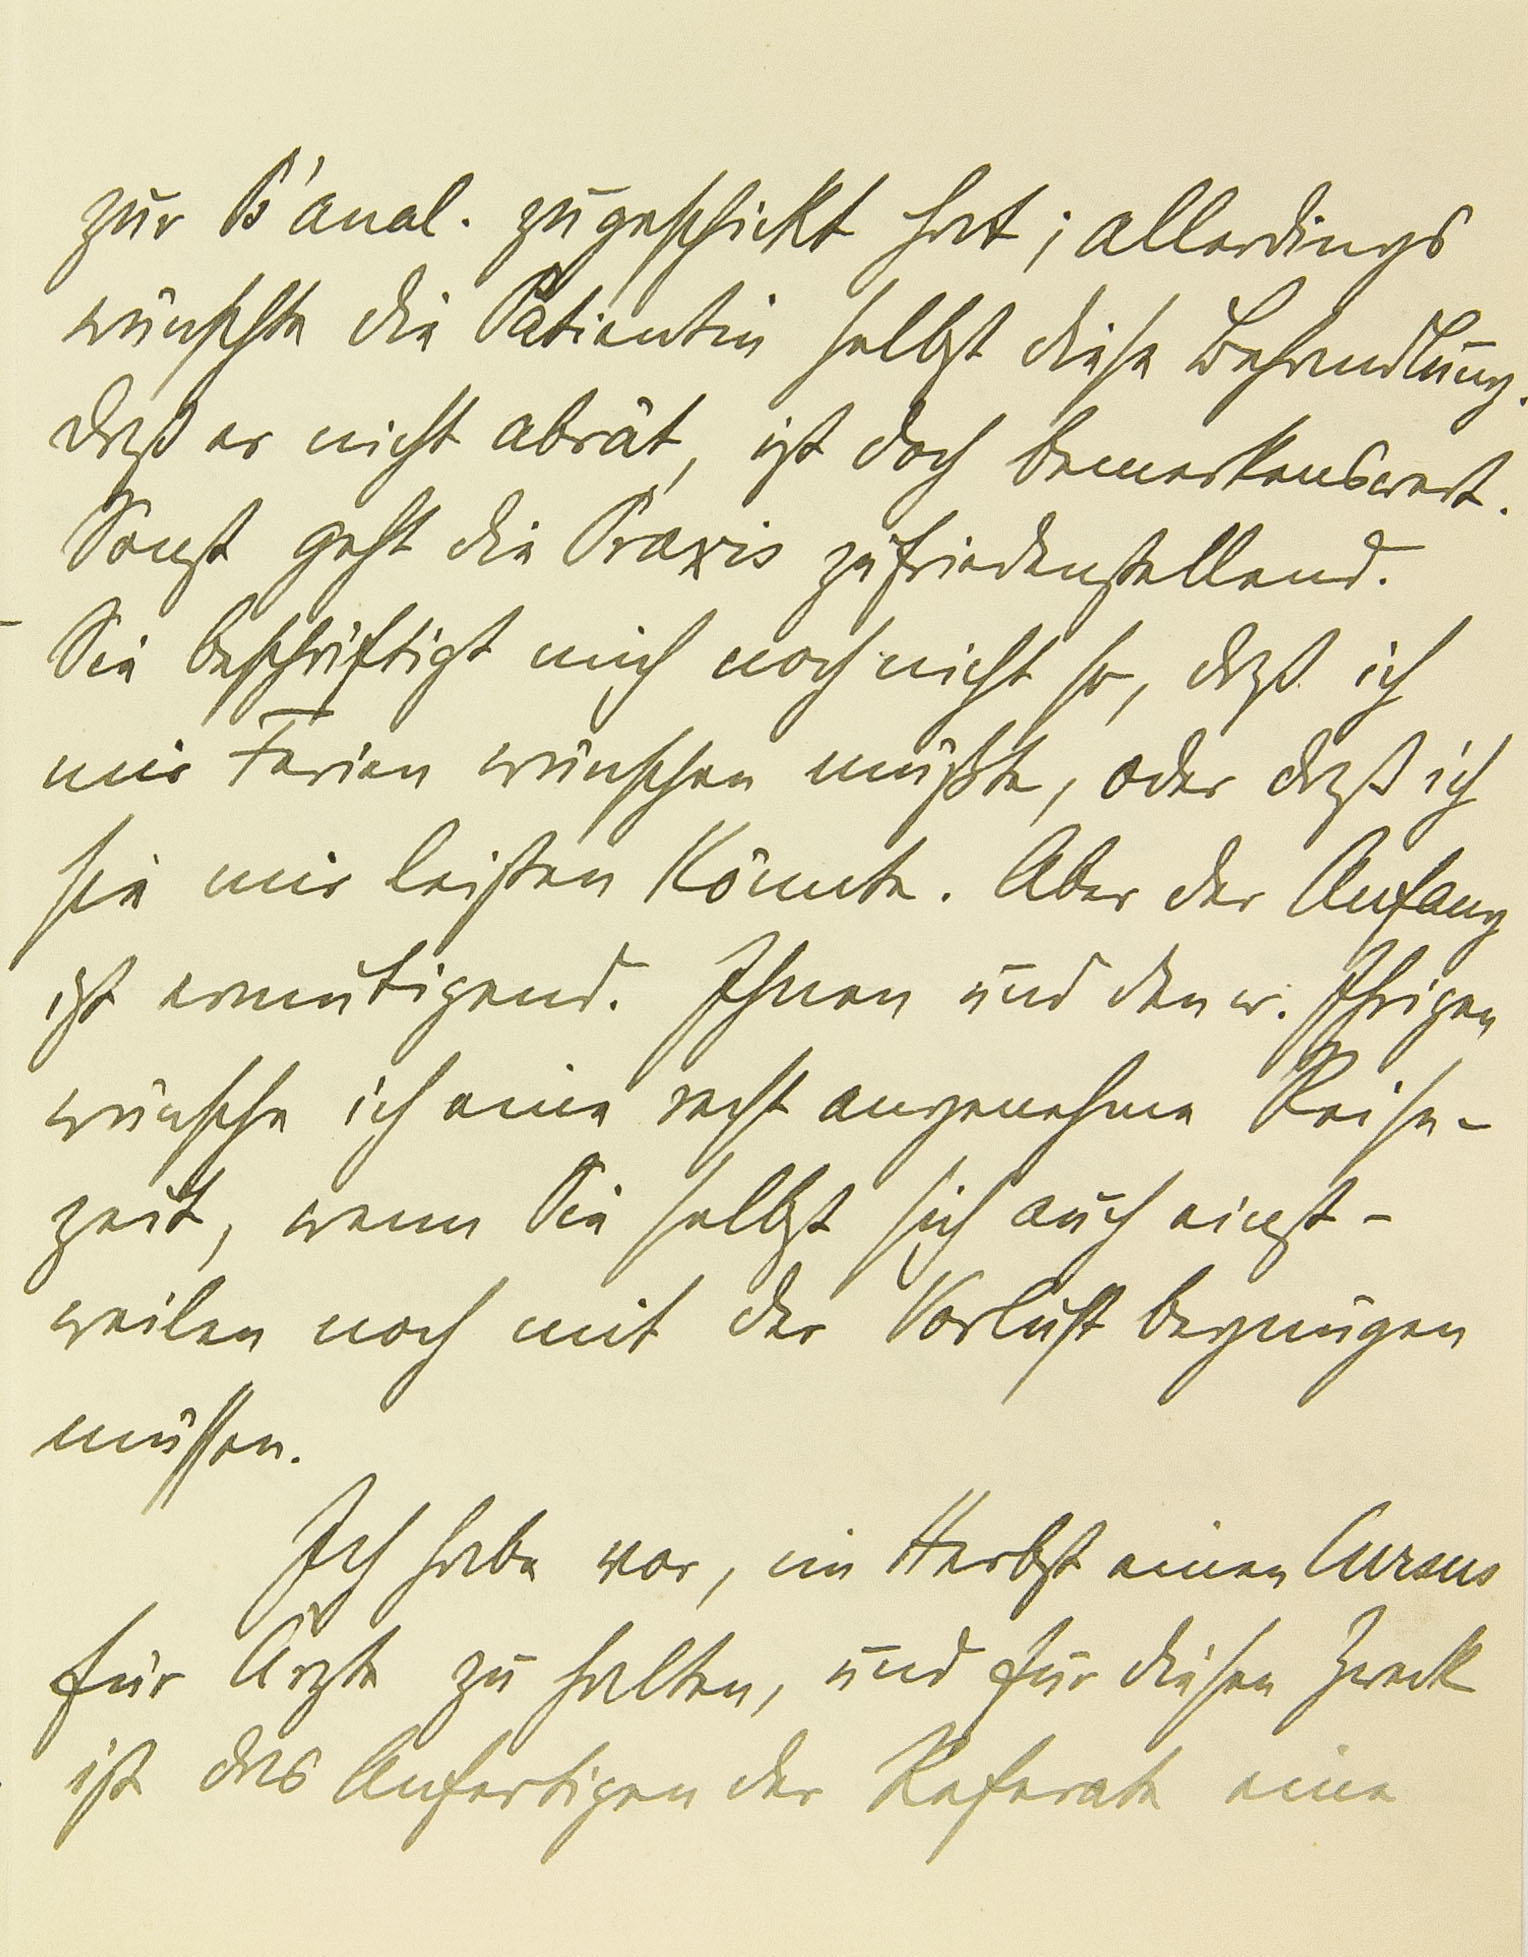 zur Ps'anal. zugeschickt hat; allerdings
wünschte die Patientin selbst diese Behandlung.
Daß er nicht abrät, ist doch bemerkenswert.
Sonst geht die Praxis zufriedenstellend.
Sie beschäftigt mich noch nicht so, daß ich
mir Ferien wünschen müßte, oder daß ich
sie mir leisten könnte. Aber der Anfang
ist ermutigend. Ihnen und den w. Ihrigen
wünsche ich eine recht angenehme Reise-
zeit, wenn Sie selbst sich auch einst-
weilen noch mit der Vorlust begnügen
müssen.
Ich habe vor, im Herbst einen Cursus
für Ärzte zu halten, und für diesen Zweck
ist das Anfertigen der Referate eine